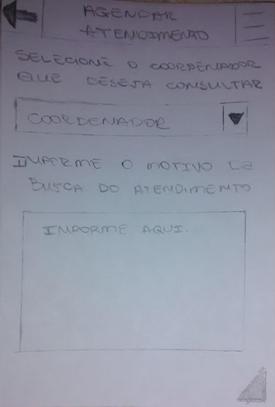 AGENDAR
ATENDIMENTO
SELECIONE O COORDENADOR
QUE DESEJA CONSULTAR
COORDENADOR
INFORME O MOTIVO DA
BUSCA DO ATENDIMENTO
INFORME AQUI.